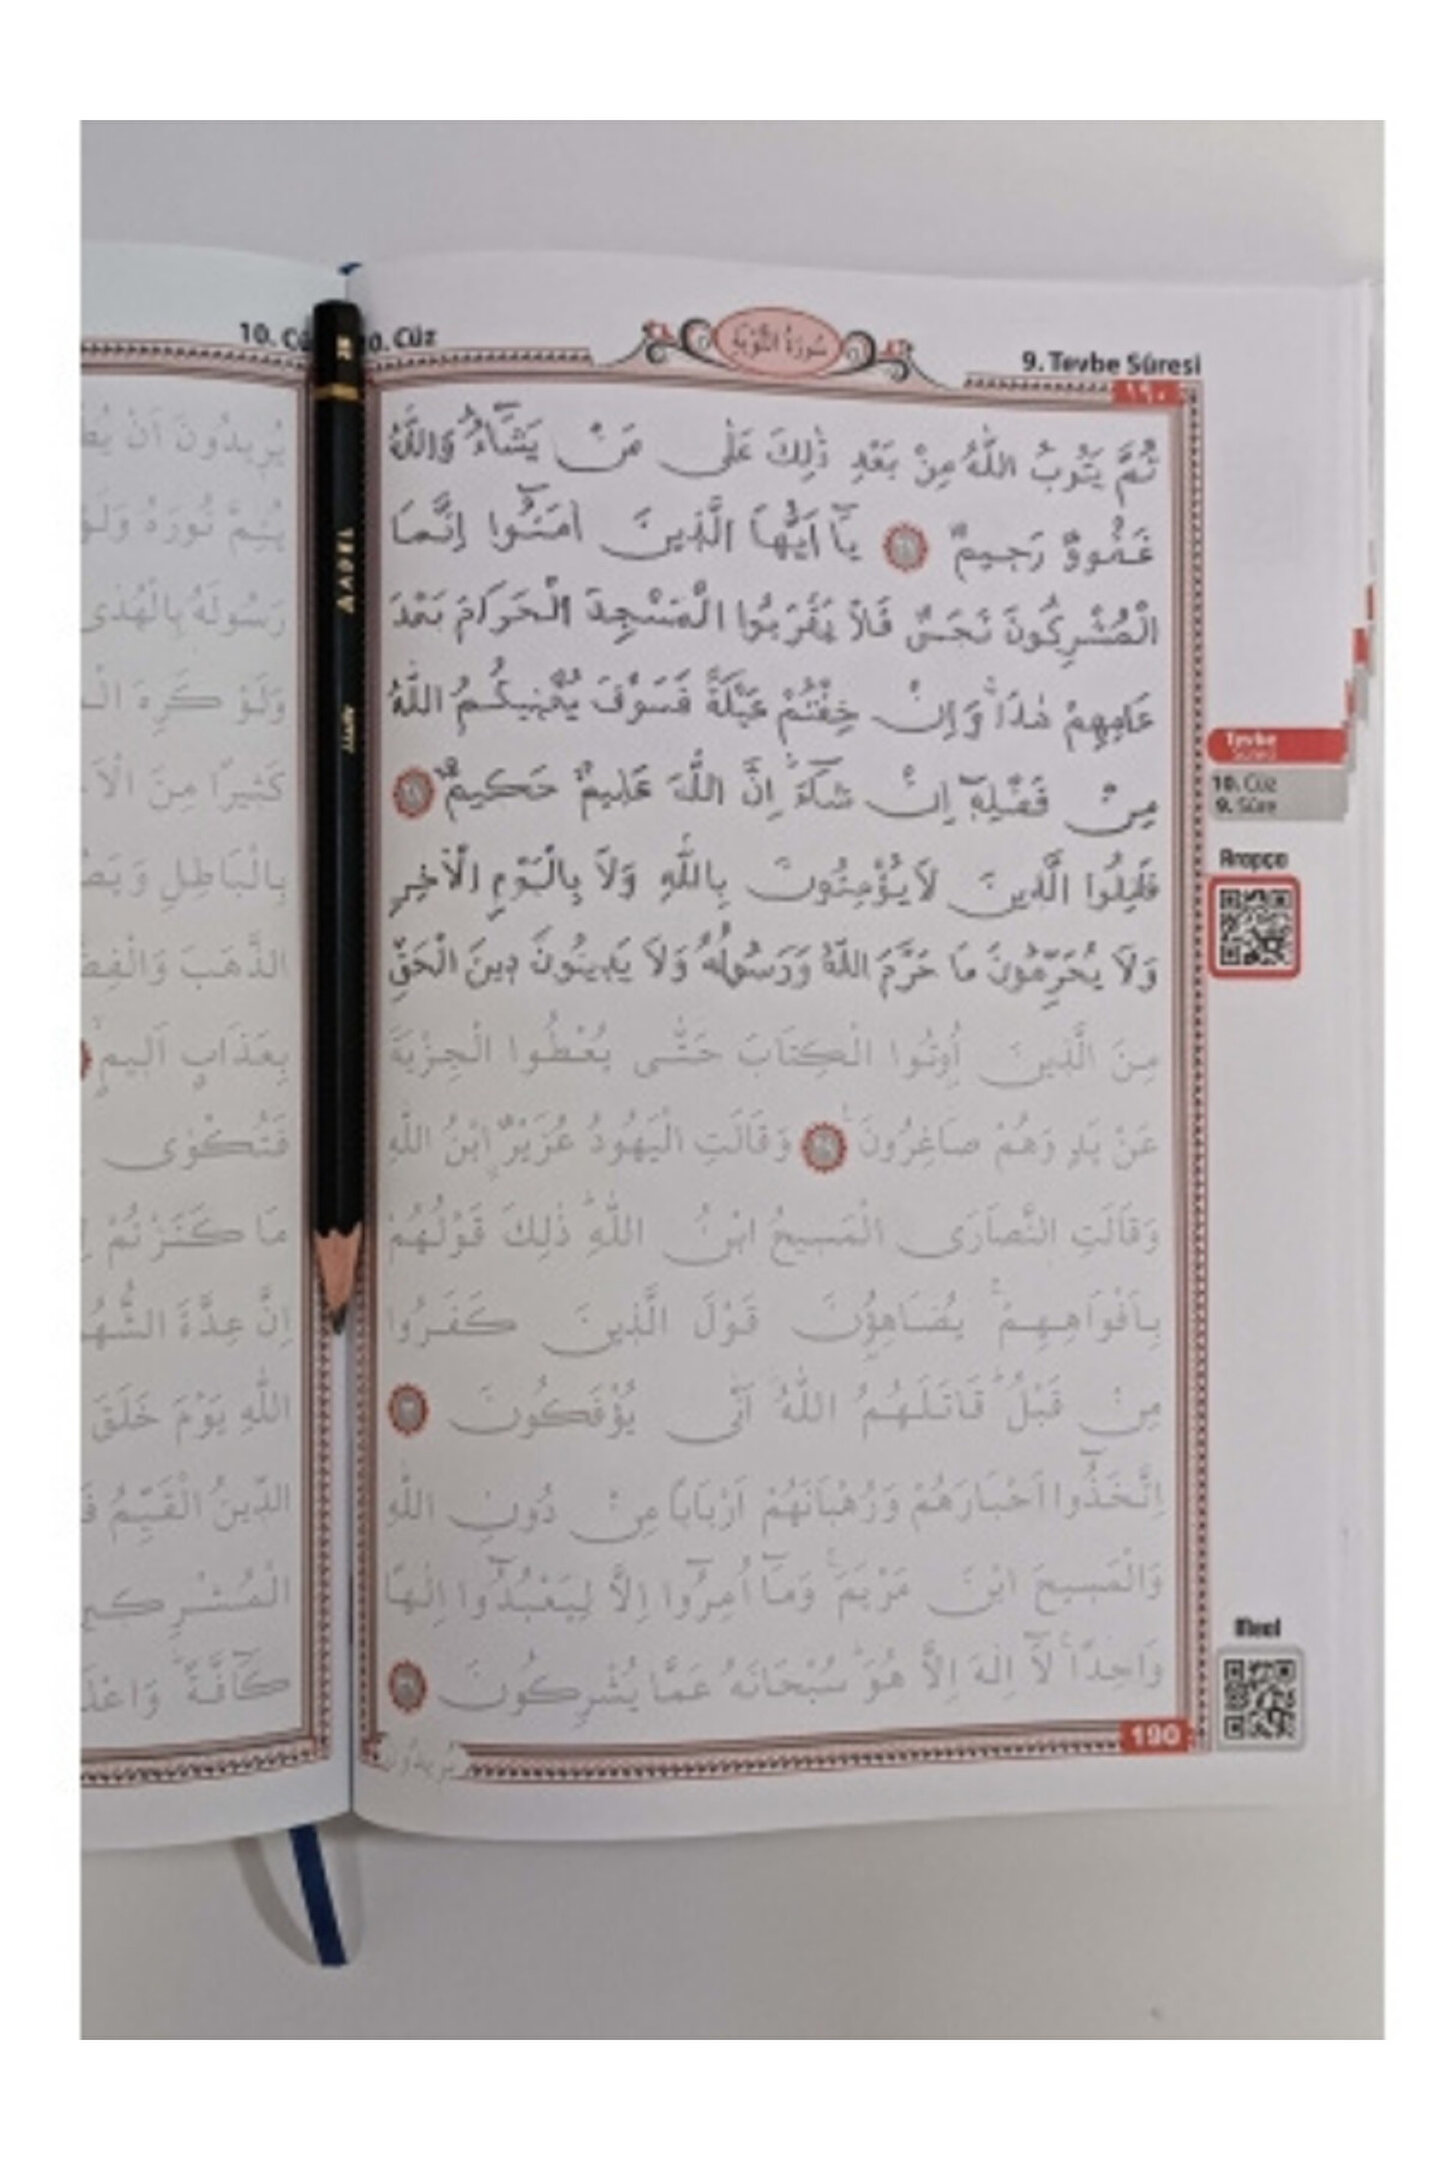 10. Cüz
سُورَةُ التَّوْبَةِ
9. Tevbe Sûresi
١٩٠
ثُمَّ يَتُوبُ اللّٰهُ مِنْ بَعْدِ ذٰلِكَ عَلٰى مَنْ يَشَٓاءُ وَاللّٰهُ
غَفُورٌ رَحِيمٌ يَٓا اَيُّهَا الَّذِينَ اٰمَنُٓوا اِنَّمَا
الْمُشْرِكُونَ نَجَسٌ فَلَا يَقْرَبُوا الْمَسْجِدَ الْحَرَامَ بَعْدَ
عَامِهِمْ هٰذَا وَاِنْ خِفْتُمْ عَيْلَةً فَسَوْفَ يُغْنِيكُمُ اللّٰهُ
مِنْ فَضْلِهِٓ اِنْ شَٓاءَ اِنَّ اللّٰهَ عَلِيمٌ حَكِيمٌ
قَاتِلُوا الَّذِينَ لَا يُؤْمِنُونَ بِاللّٰهِ وَلَا بِالْيَوْمِ الْاٰخِرِ
وَلَا يُحَرِّمُونَ مَا حَرَّمَ اللّٰهُ وَرَسُولُهُ وَلَا يَدِينُونَ دِينَ الْحَقِّ
مِنَ الَّذِينَ اُوتُوا الْكِتَابَ حَتّٰى يُعْطُوا الْجِزْيَةَ
عَنْ يَدٍ وَهُمْ صَاغِرُونَ وَقَالَتِ الْيَهُودُ عُزَيْرٌ ابْنُ اللّٰهِ
وَقَالَتِ النَّصَارَى الْمَسِيحُ ابْنُ اللّٰهِ ذٰلِكَ قَوْلُهُمْ
بِاَفْوَاهِهِمْ يُضَاهِؤُنَ قَوْلَ الَّذِينَ كَفَرُوا
مِنْ قَبْلُ قَاتَلَهُمُ اللّٰهُ اَنّٰى يُؤْفَكُونَ
اِتَّخَذُٓوا اَحْبَارَهُمْ وَرُهْبَانَهُمْ اَرْبَابًا مِنْ دُونِ اللّٰهِ
وَالْمَسِيحَ ابْنَ مَرْيَمَ وَمَٓا اُمِرُٓوا اِلَّا لِيَعْبُدُٓوا اِلٰهًا
وَاحِدًا لَٓا اِلٰهَ اِلَّا هُوَ سُبْحَانَهُ عَمَّا يُشْرِكُونَ
يُرِيدُونَ
190
Tevbe
Sûresi
10. Cüz
9. Sûre
Arapça
Meal
10.
يُرِيدُونَ اَنْ
يُتِمَّ نُورَهُ وَلَوْ
رَسُولَهُ بِالْهُدٰى
وَلَوْ كَرِهَ
كَثِيرًا مِنَ
بِالْبَاطِلِ
الذَّهَبَ
بِعَذَابٍ اَلِيمٍ
فَتُكْوٰى
مَا كَنَزْتُمْ
اِنَّ عِدَّةَ
اللّٰهِ يَوْمَ خَلَقَ
الدِّينُ الْقَيِّمُ
كَٓافَّةً
ADEL